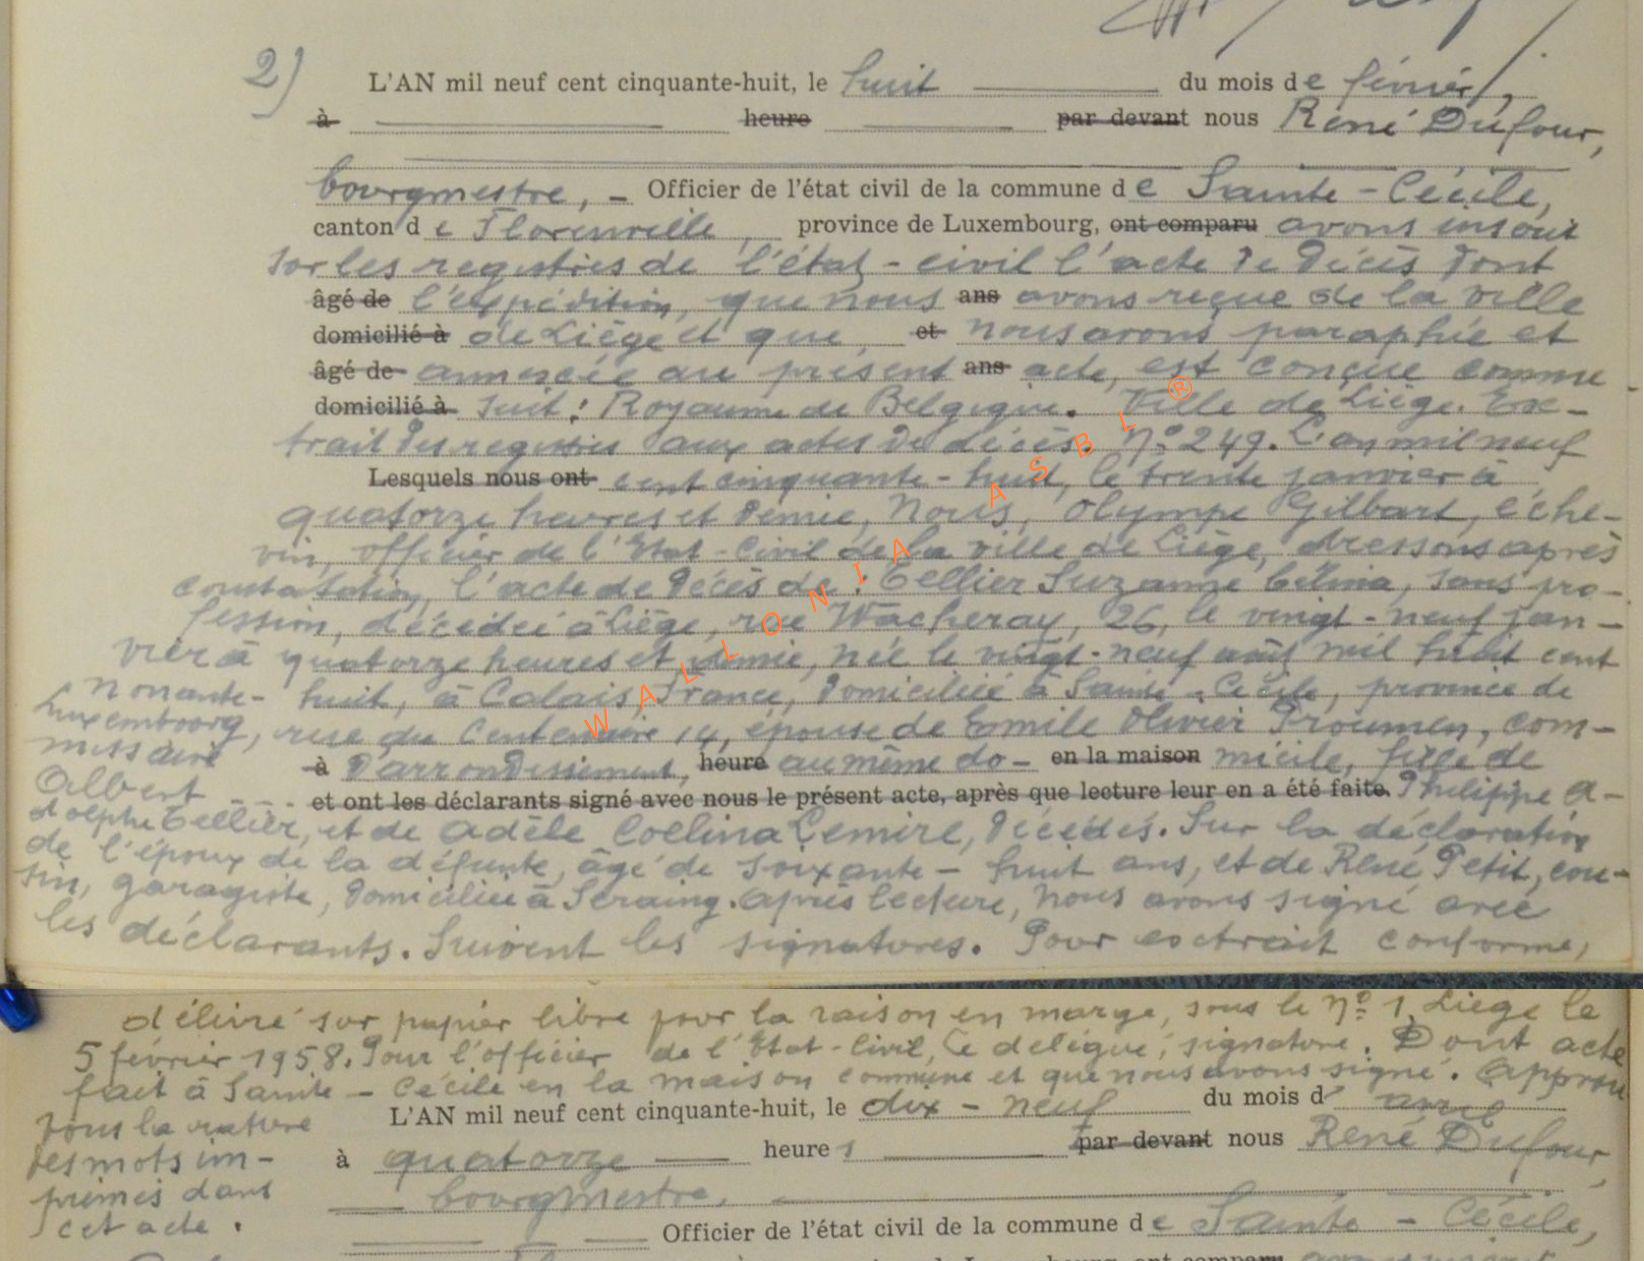 2)
L'AN mil neuf cent cinquante-huit, le huit du mois de février,
à heure par devant nous René Dufour,
bourgmestre, - Officier de l'état civil de la commune de Sainte-Cécile,
canton de Florenville, province de Luxembourg, ont comparu avons inscrit
sur les registres de l'état-civil l'acte de décès dont
âgé de l'expédition, que nous ans avons reçue de la ville
domicilié à de Liège et que, et nous avons paraphée et
âgé de annexée au présent ans acte, est conçue comme
domicilié à suit: Royaume de Belgique. Ville de Liège. Ex-
trait des registres aux actes de décès. N° 249. L'an mil neuf
Lesquels nous ont cent cinquante-huit, le trente janvier à
quatorze heures et demie, Nous, Olympe Gilbart, éche-
vin, officier de l'Etat-Civil de la ville de Liège, dressons après
constatation, l'acte de décès de: Tellier Suzanne Célina, sans pro-
fession, décédée à Liège, rue Wacheray, 26, le vingt-neuf jan-
vier à quatorze heures et demie, née le vingt-neuf août mil huit cent
nonante-huit, à Calais, France, domiciliée à Sainte-Cécile, province de
Luxembourg, rue du Centenaire 14, épouse de Emile Olivier Proumen, com-
missaire à d'arrondissement, heure au même do- en la maison micile, fille de
Albert et ont les déclarants signé avec nous le présent acte, après que lecture leur en a été faite. Philippe A-
dolphe Tellier, et de Adèle Coelina Lemire, décédés. Sur la déclaration
de l'époux de la défunte, âgé de soixante-huit ans, et de René Petit, cou-
sin, garagiste, domicilié à Seraing. Après lecture, nous avons signé avec
les déclarants. Suivent les signatures. Pour extrait conforme,
délivré sur papier libre pour la raison en marge, sous le N° 1. Liège le
5 février 1958. Pour l'officier de l'Etat-Civil, Le délégué, signature. Dont acte
fait à Sainte-Cécile en la maison commune et que nous avons signé. Approu
vons la rature
des mots im-
primés dans
cet acte.
L'AN mil neuf cent cinquante-huit, le dix-neuf du mois d' avril
à quatorze heure s par devant nous René Dufour,
bourgmestre,
Officier de l'état civil de la commune de Sainte-Cécile,
WALLONIA ASBL ®